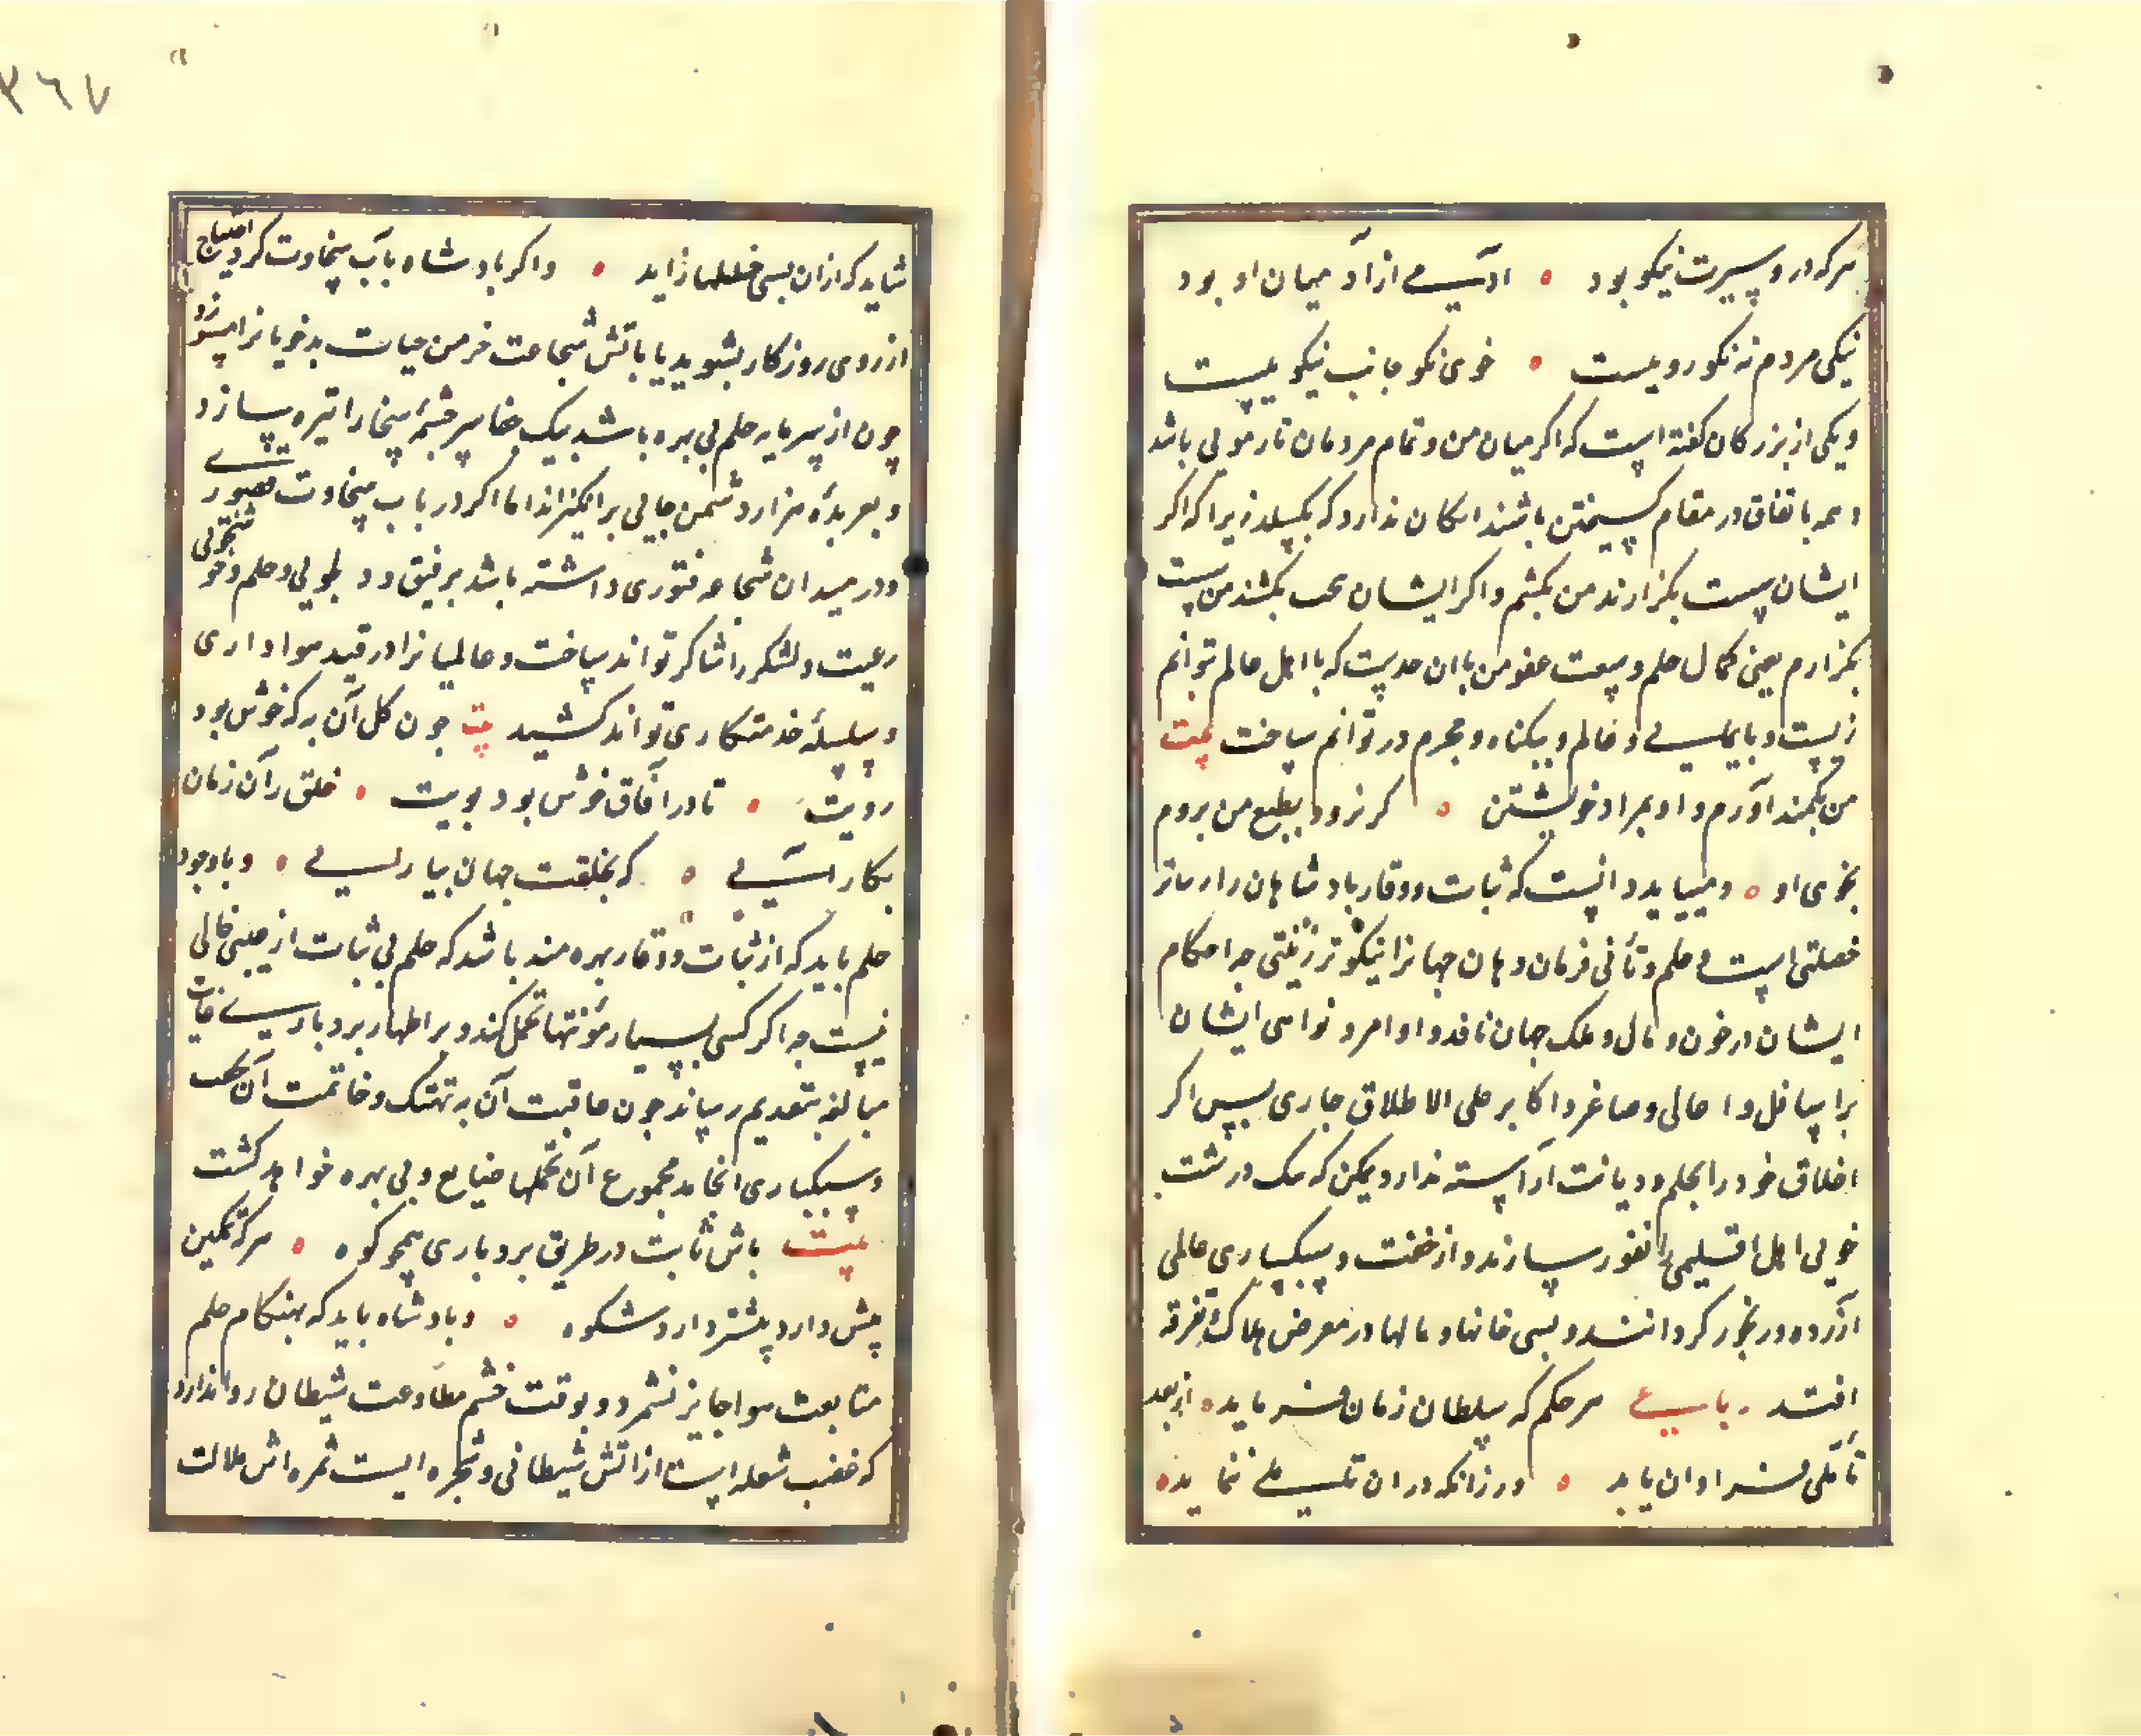 هرکه درو سیرت نیکو بود ه ادمیی از آدمیان او بود
نیکی مردم نه نکو روییست ه خوی نکو جانب نیکوییست
و یکی از بزرکان کفته است که اکر میان من و تمام مردمان تار مویی باشد
و همه باتفاق در مقام کسیختن باشند امکان ندارد که بکسلد زیرا که اکر
ایشان سست بکزارند من بکشم و اکر ایشان سخت بکشند من سست
بکزارم یعنی کمال حلم و سعت عفو من بان حدیست که با اهل عالم توانم
زیست و با و عالم و بیکناه و مجرم در توانم ساخت بیت
من بکمند آورم او بمراد خویشتن ه کر نرود بطبع من بروم
بخوی او ه و میباید دانست که ثبات و وقار بادشاهان را
خصلتی است و حلم و تأنی فرمان دهان جهانرا نیکوتر زینتی چه احکام
ایشان در خون و مال و ملک جهان نافذ و اوامر و نواهی ایشان
بر اسافل و اعالی و صاغر و اکابر علی الاطلاق جاری بس اکر
اخلاق خود را بحلم و دیانت آراسته ندارد یمکن که بیک درشت
خویی اهل اقلیمی را نفور سازند و از خفت و سبکساری عالمی
آزرده و رنجور کردانند و بسی خانها و مالها در معرض هلاک و تفرقه
افتد رباعی هر حکم که سلطان زمان فرماید ه از بعد
تأملی فراوان باید ه ورزانکه در ان تأملی ننماید ه
٣٦٧
شاید که از ان بسی خللها زاید ه و اکر بادشاه بآب سخاوت کرد احتیاج
از روی روزکار بشوید یا باتش شجاعت خرمن حیات بدخویانرا بسوزد
چون از سرمایه حلم بی بهره باشد بیک جفا سرچشمه سخا را تیره سازد
و بعربده هزار دشمن جانی برانکیزاند اما اکر در باب سخاوت قصوری
و در میدان شجاعه فتوری داشته باشد برفق و دلجویی و حلم و خوشخویی
رعیت و لشکر را شاکر تواند ساخت و عالمیانرا در قید هواداری
و سلسله خدمتکاری تواند کشید بیت چون کل آن به که خوش بود
رویت ه تا در آفاق خوش بود بویت ه خلق را آن زمان
بکار آیی ه که بخلقت جهان بیارایی ه و باوجود
حلم باید که از ثبات و وقار بهره مند باشد که حلم بی ثبات از عیبی خالی
نیست چه اکر کسی بسیار مؤنتها تحمل کند و بر اظهار بردباری غایت
مبالغه بتقدیم رساند چون عاقبت آن به تهتک و خاتمت آن بخفت
و سبکباری انجامد مجموع آن تحملها ضایع و بی بهره خواهد کشت
بیت باش ثابت در طریق بردباری همچو کوه ه هرکه تمکین
بیش دارد بیشتر دارد شکوه ه و بادشاه باید که بهنکام حلم
متابعت هوا جایز نشمرد و بوقت خشم مطاوعت شیطان روا ندارد
که غضب شعله ایست از اتش شیطانی و شجره ایست ثمره اش ملالت